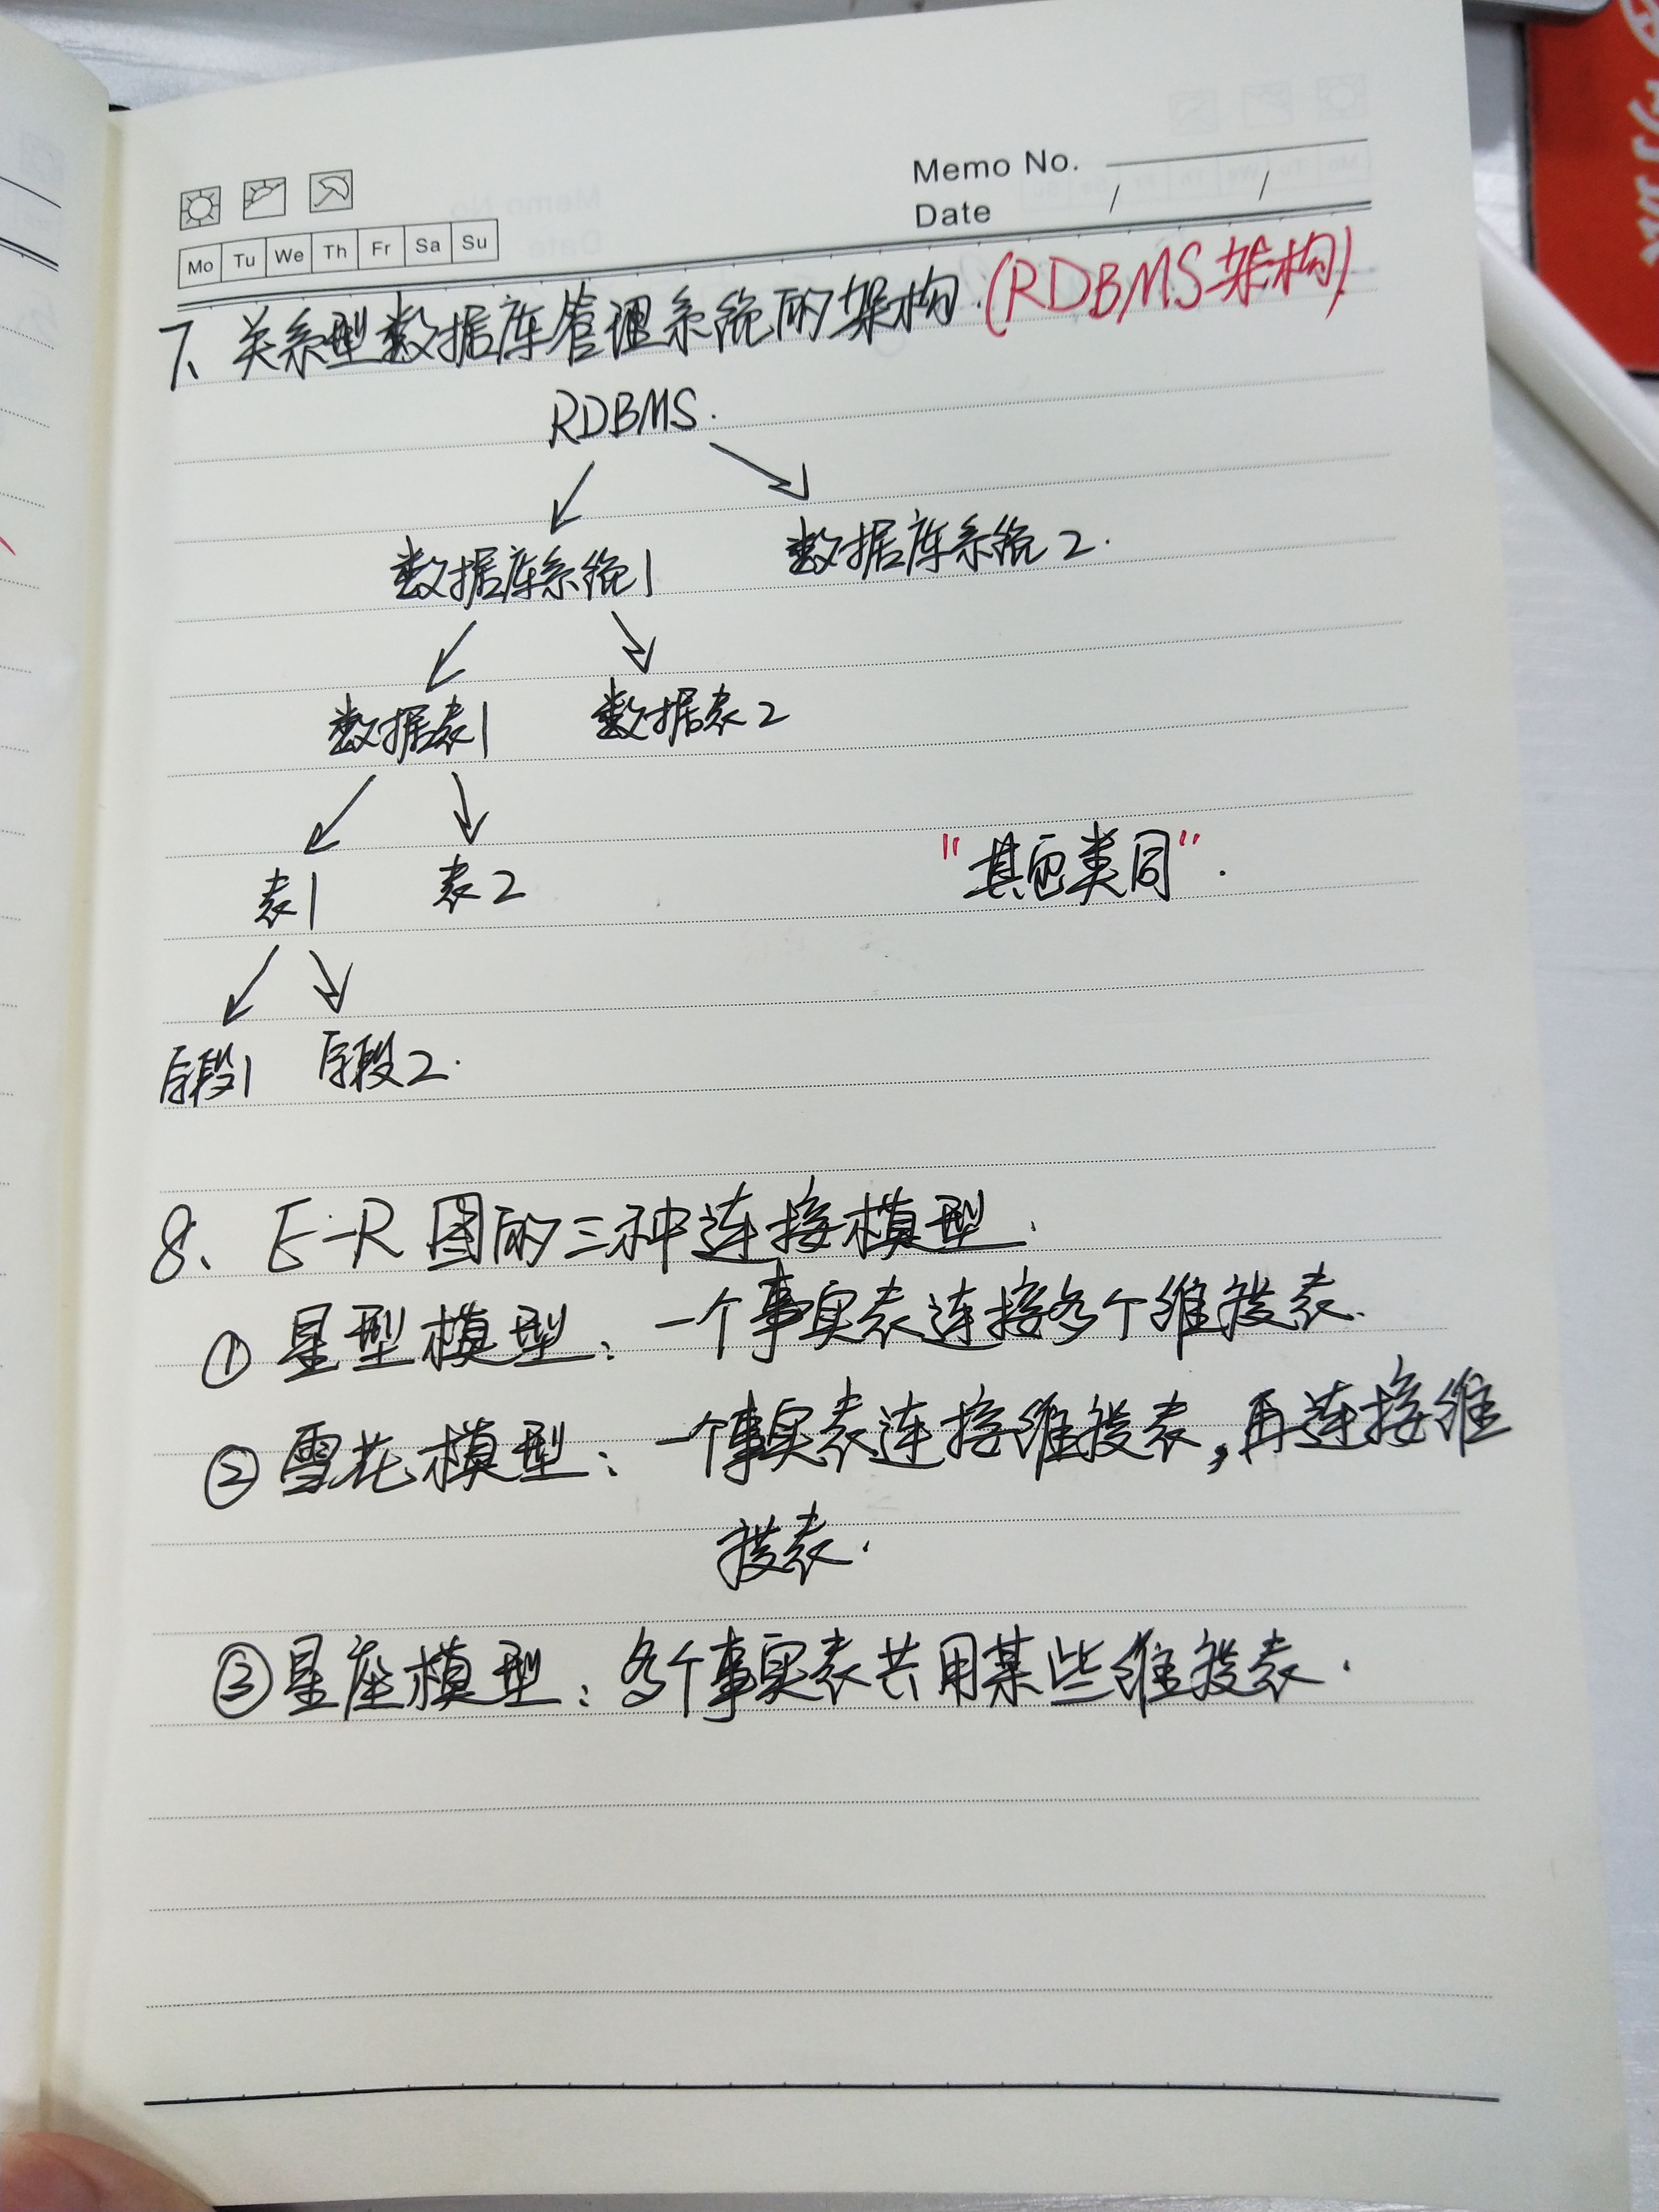 Memo No.
Date / /
Mo Tu We Th Fr Sa Su
7、关系型数据库管理系统的架构.(RDBMS架构)
RDBMS.
数据库系统1 数据库系统2.
数据表1 数据表2
表1 表2
"其它类同".
字段1 字段2.
8、E-R图的三种连接模型.
①星型模型:一个事实表连接多个维度表.
②雪花模型:一个事实表连接维度表,再连接维
度表.
③星座模型:多个事实表共用某些维度表.